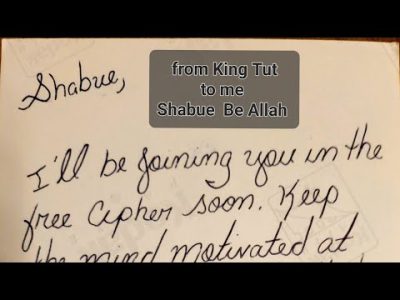 from King Tut
to me
Shabue Be Allah
Shabue,
I'll be joining you in the
free Cipher soon. Keep
the mind motivated at